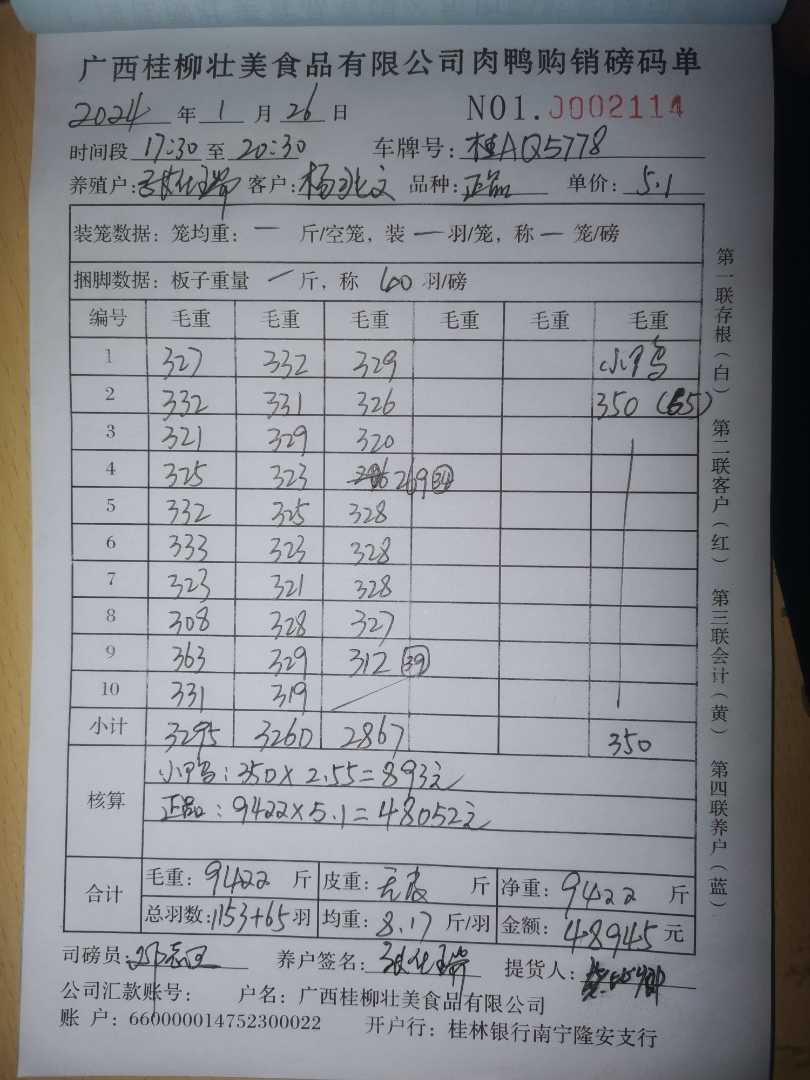 广西桂柳壮美食品有限公司肉鸭购销磅码单
2024 年 1 月 26 日 NO1. 0002114
时间段 17:30 至 20:30 车牌号: 桂AQ5778
养殖户: 客户: 杨 文 品种: 正品 单价: 5.1
装笼数据: 笼均重: 一 斤/空笼, 装 一 羽/笼, 称 一 笼/磅
捆脚数据: 板子重量 一 斤, 称 40 羽/磅
编号 毛重 毛重 毛重 毛重 毛重 毛重
1 327 332 329 小鸭
2 332 331 326 350 (65)
3 321 329 320
4 325 323 269 34
5 332 325 328
6 333 323 328
7 323 321 328
8 308 328 327
9 363 329 312 39
10 331 319
小计 3295 3260 2867 350
核算
小鸭: 350×2.55=893元
正品: 9422×5.1=48052元
合计
毛重: 9422 斤 皮重: 无皮 斤 净重: 9422 斤
总羽数: 1153+65 羽 均重: 8.17 斤/羽 金额: 48945 元
司磅员: 养户签名: 提货人:
公司汇款账号: 户名: 广西桂柳壮美食品有限公司
账 户: 660000014752300022 开户行: 桂林银行南宁隆安支行
第一联存根(白) 第二联客户(红) 第三联会计(黄) 第四联养户(蓝)